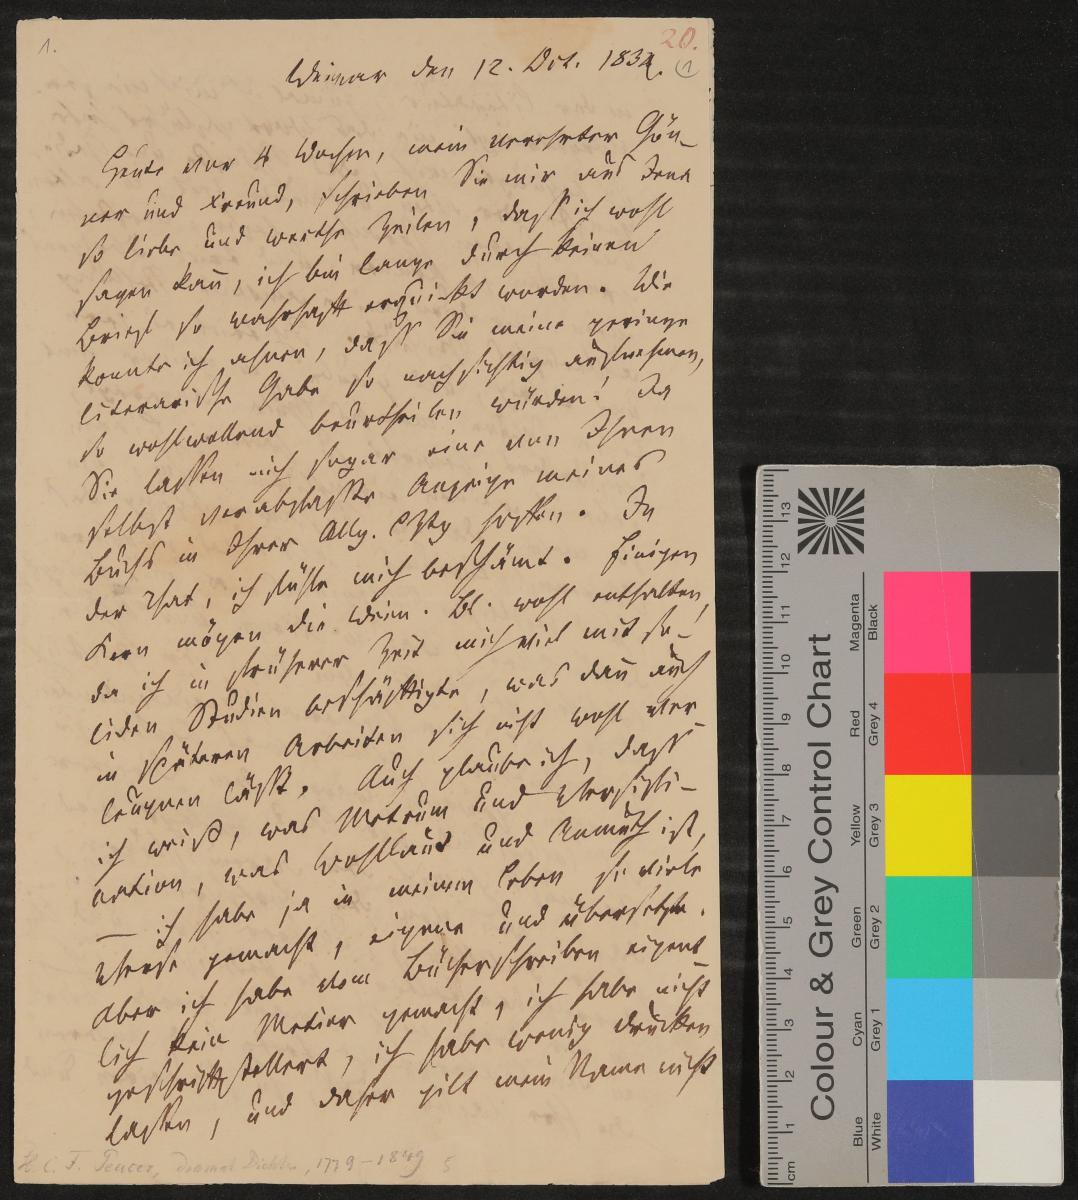 1.
20.
1
Weimar den 12. Oct. 1832.
Heute vor 4 Wochen, mein verehrter Gön-
ner und Freund, schrieben Sie mir aus Jena
so liebe und werthe Zeilen, daß ich wohl
sagen kañ, ich bin lange durch keinen
Brief so wahrhaft erquickt worden. Wie
konnte ich ahnen, daß Sie meine geringe
literarische Gabe so nachsichtig aufnehmen,
so wohlwollend beurtheilen würden! Ja
Sie lassen mich sogar eine von Ihnen
selbst verabfaßte Anzeige meines
Buchs in Ihrer Allg. hoffen. In
der That, ich fühle mich beschämt. Einigen
Kern mögen die Weim. Bl. wohl enthalten,
da ich in früherer Zeit mich viel mit so-
liden Studien beschäftigte, was dañ auch
in späteren Arbeiten sich nicht wohl ver-
leugnen läßt. Auch glaube ich, daß
ich weiß, was Metrum und Versifi-
cation, was Wohllaut und Anmuth ist,
— ich habe ja in meinem Leben so viele
Verse gemacht, eigene und übersetzte.
Aber ich habe vom Bücherschreiben eigent-
lich kein Metier gemacht, ich habe nicht
geschriftstellert, ich habe wenig drucken
lassen, und daher gilt mein Name nicht
H. C. F. Peucer, dramat Dichter, 1779-1849 5
13
12
11
10
9
8
7
6
5
4
3
2
1
cm
Colour & Grey Control Chart
Blue Cyan Green Yellow Red Magenta
White Grey 1 Grey 2 Grey 3 Grey 4 Black